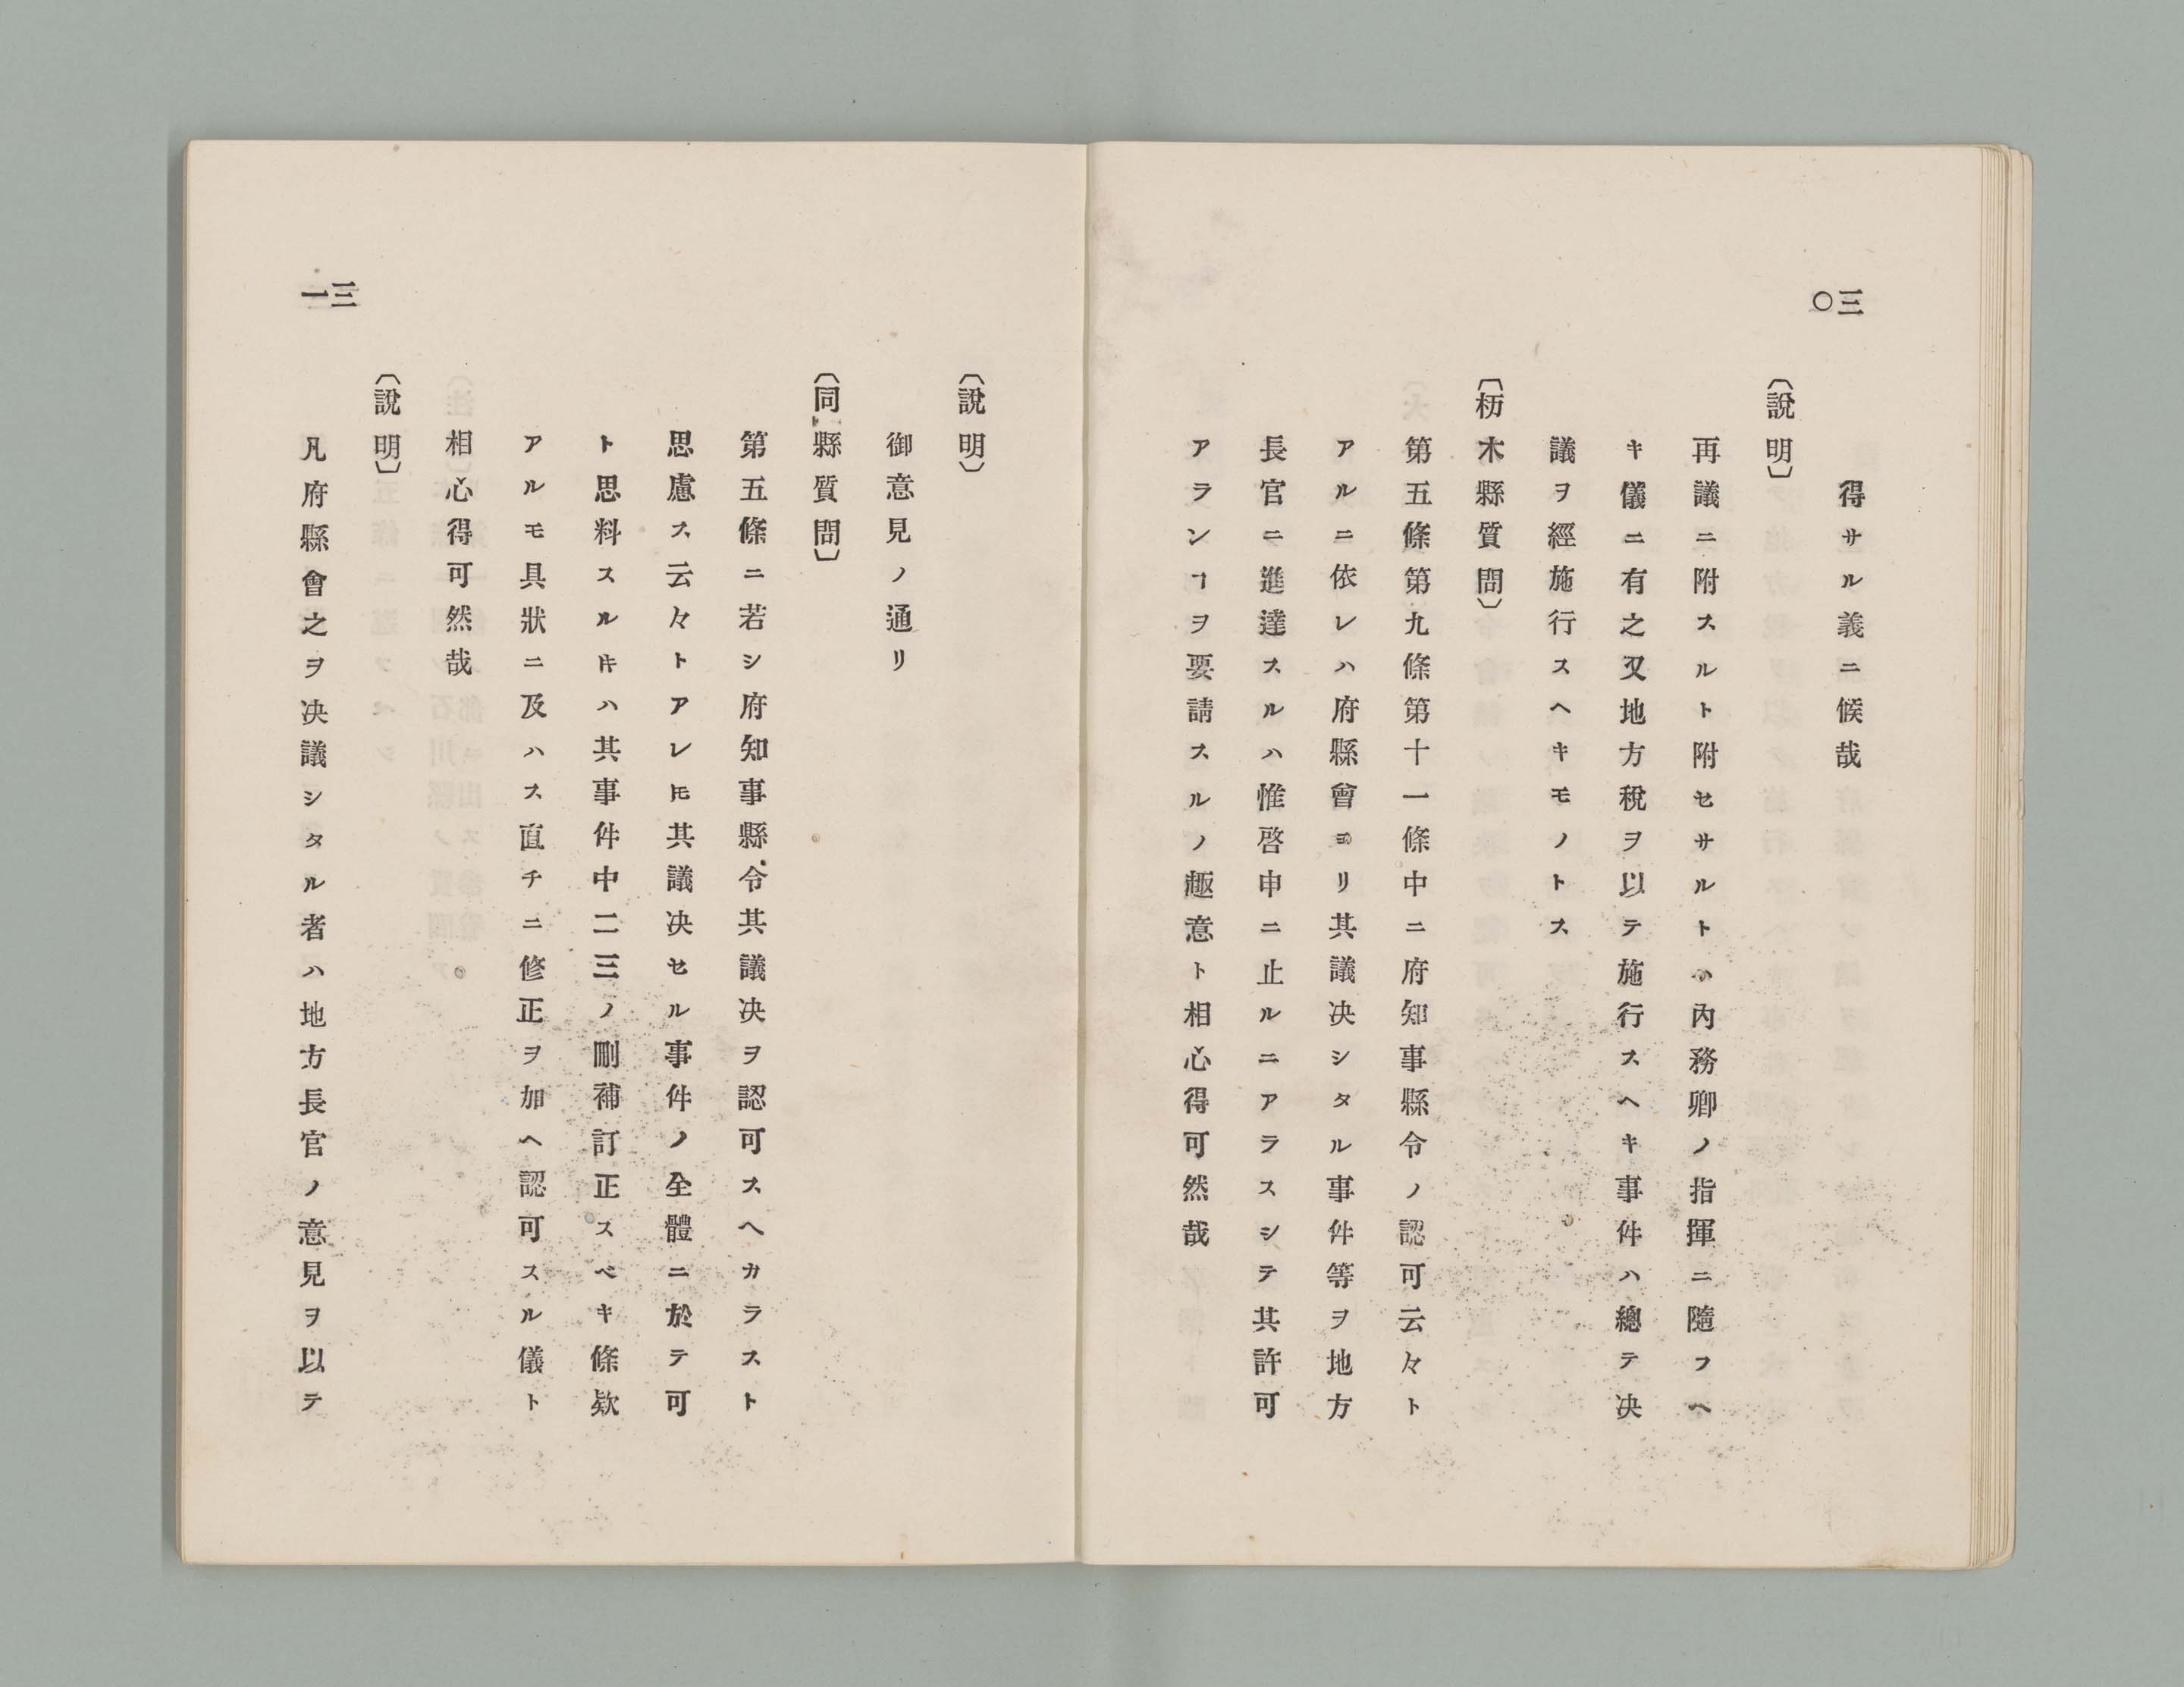 三〇
得サル義ニ候哉
〔說明〕
再議ニ附スルト附セサルトハ內務卿ノ指揮ニ隨フヘ
キ儀ニ有之又地方稅ヲ以テ施行スヘキ事件ハ總テ决
議ヲ經施行スヘキモノトス
〔栃木縣質問〕
第五條第九條第十一條中ニ府知事縣令ノ認可云々ト
アルニ依レハ府縣會ヨリ其議决シタル事件等ヲ地方
長官ニ進達スルハ惟啓申ニ止ルニアラスシテ其許可
アランヿヲ要請スルノ趣意ト相心得可然哉
三一
〔說明〕
御意見ノ通リ
〔同縣質問〕
第五條ニ若シ府知事縣令其議决ヲ認可スヘカラスト
思慮ス云々トアレ𪜈其議决セル事件ノ全體ニ於テ可
ト思料スル𪜀ハ其事件中二三ノ刪補訂正スベキ條欵
アルモ具狀ニ及ハス直チニ修正ヲ加ヘ認可スル儀ト
相心得可然哉
〔說明〕
凡府縣會之ヲ决議シタル者ハ地方長官ノ意見ヲ以テ